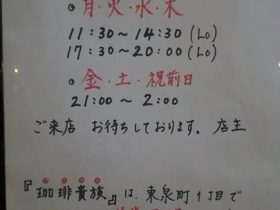 ◎月・火・水・木
11:30〜14:30(Lo)
17:30〜20:00(Lo)
◎金・土・祝前日
21:00〜2:00
ご来店 お待ちしております。店主
『珈琲貴族』は、東泉町1丁目で